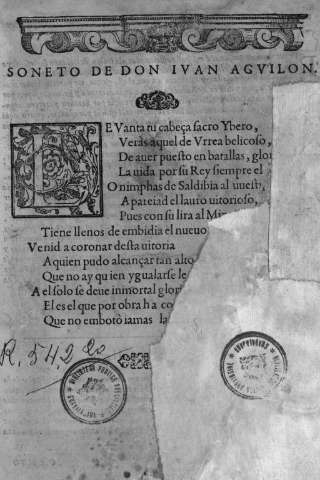 SONETO DE DON IVAN AGVILON.
LEVanta tu cabeça sacro Ybero,
Veràs aquel de Vrrea belicoso,
De auer puesto en batallas, glo
La uida por su Rey siempre el
O nimphas de Saldibia al
Aparejad el lauro uitorioso,
Pues con su lira al
Tiene llenos de embidia el nueuo
Venid a coronar desta uitoria
A quien pudo alcançar tan alto
Que no ay quien ygualarse le
A el solo se deue inmortal glor
El es el que por obra ha co
Que no embotò iamas la
R. 5429